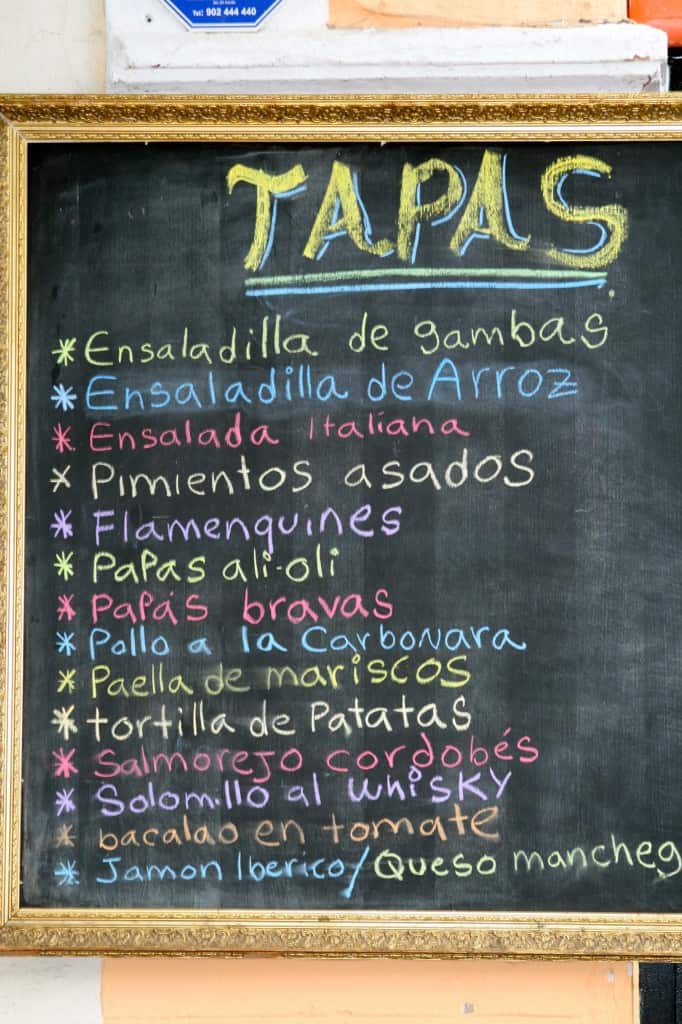 Tel: 902 444 440
TAPAS
* Ensaladilla de gambas
* Ensaladilla de Arroz
* Ensalada Italiana
* Pimientos asados
* Flamenquines
* Papas ali-oli
* Papas bravas
* Pollo a la Carbonara
* Paella de mariscos
* tortilla de Patatas
* Salmorejo cordobés
* Solomillo al whisky
* bacalao en tomate
* Jamon Iberico/Queso mancheg